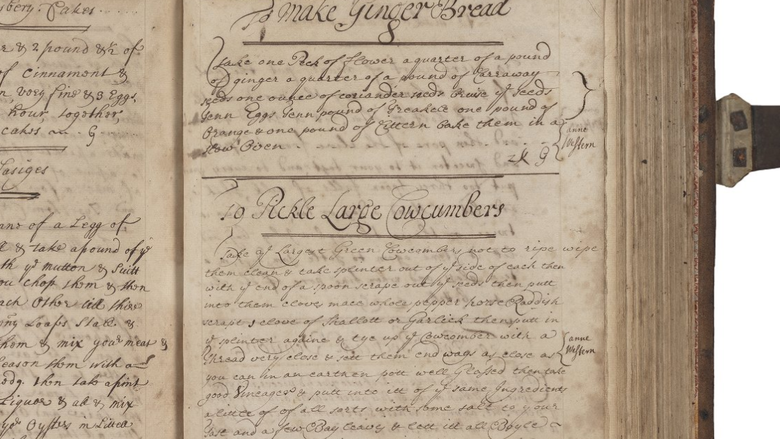 Cakes
& 2 pound &½ of
of Cinnamont &
very fine & 3 Eggs
hour together
cakes
ans of a Legg of
& take a pound of yᵉ
th yᵉ Mutton & Suitt
ou Chop them & then
ach Other till thire
them & mix your meat &
eason them with a
then tak a pint
Liquor & all & mix
yᵉ Oysters in
To Make Ginger Bread
Take one Peck of flower a quarter of a pound
of ginger a quarter of a pound of Carraway
seeds one ounce of coriander seeds bruise yᵉ Seeds
Tenn Eggs Tenn pound of Treakele one pound of
Orange & one pound of Cittern bake them in a
Slow Oven .
anne
Western
To Pickle Large Cowcumbers
Take yᵉ Largest Green Cowcumbers not to ripe wipe
them clean & take splinter out of yᵉ side of each then
with yᵉ end of a spoon scrape out yᵉ seeds then putt
into them cloves mace whole pepper horse Raddish
scrapt 1 clove of Shallott or Garlick then putt in
yᵉ splinter againe & tye up yᵉ Cowcomber with a
thread very close & sett them end ways as close as
you can in an earthen pott well Glased then take
good Vineager & putt into itt of yᵉ same Ingredients
a little of of all sorts with some salt to your
tast and a few Bay leaves & lett itt all Boyle
anne
Western